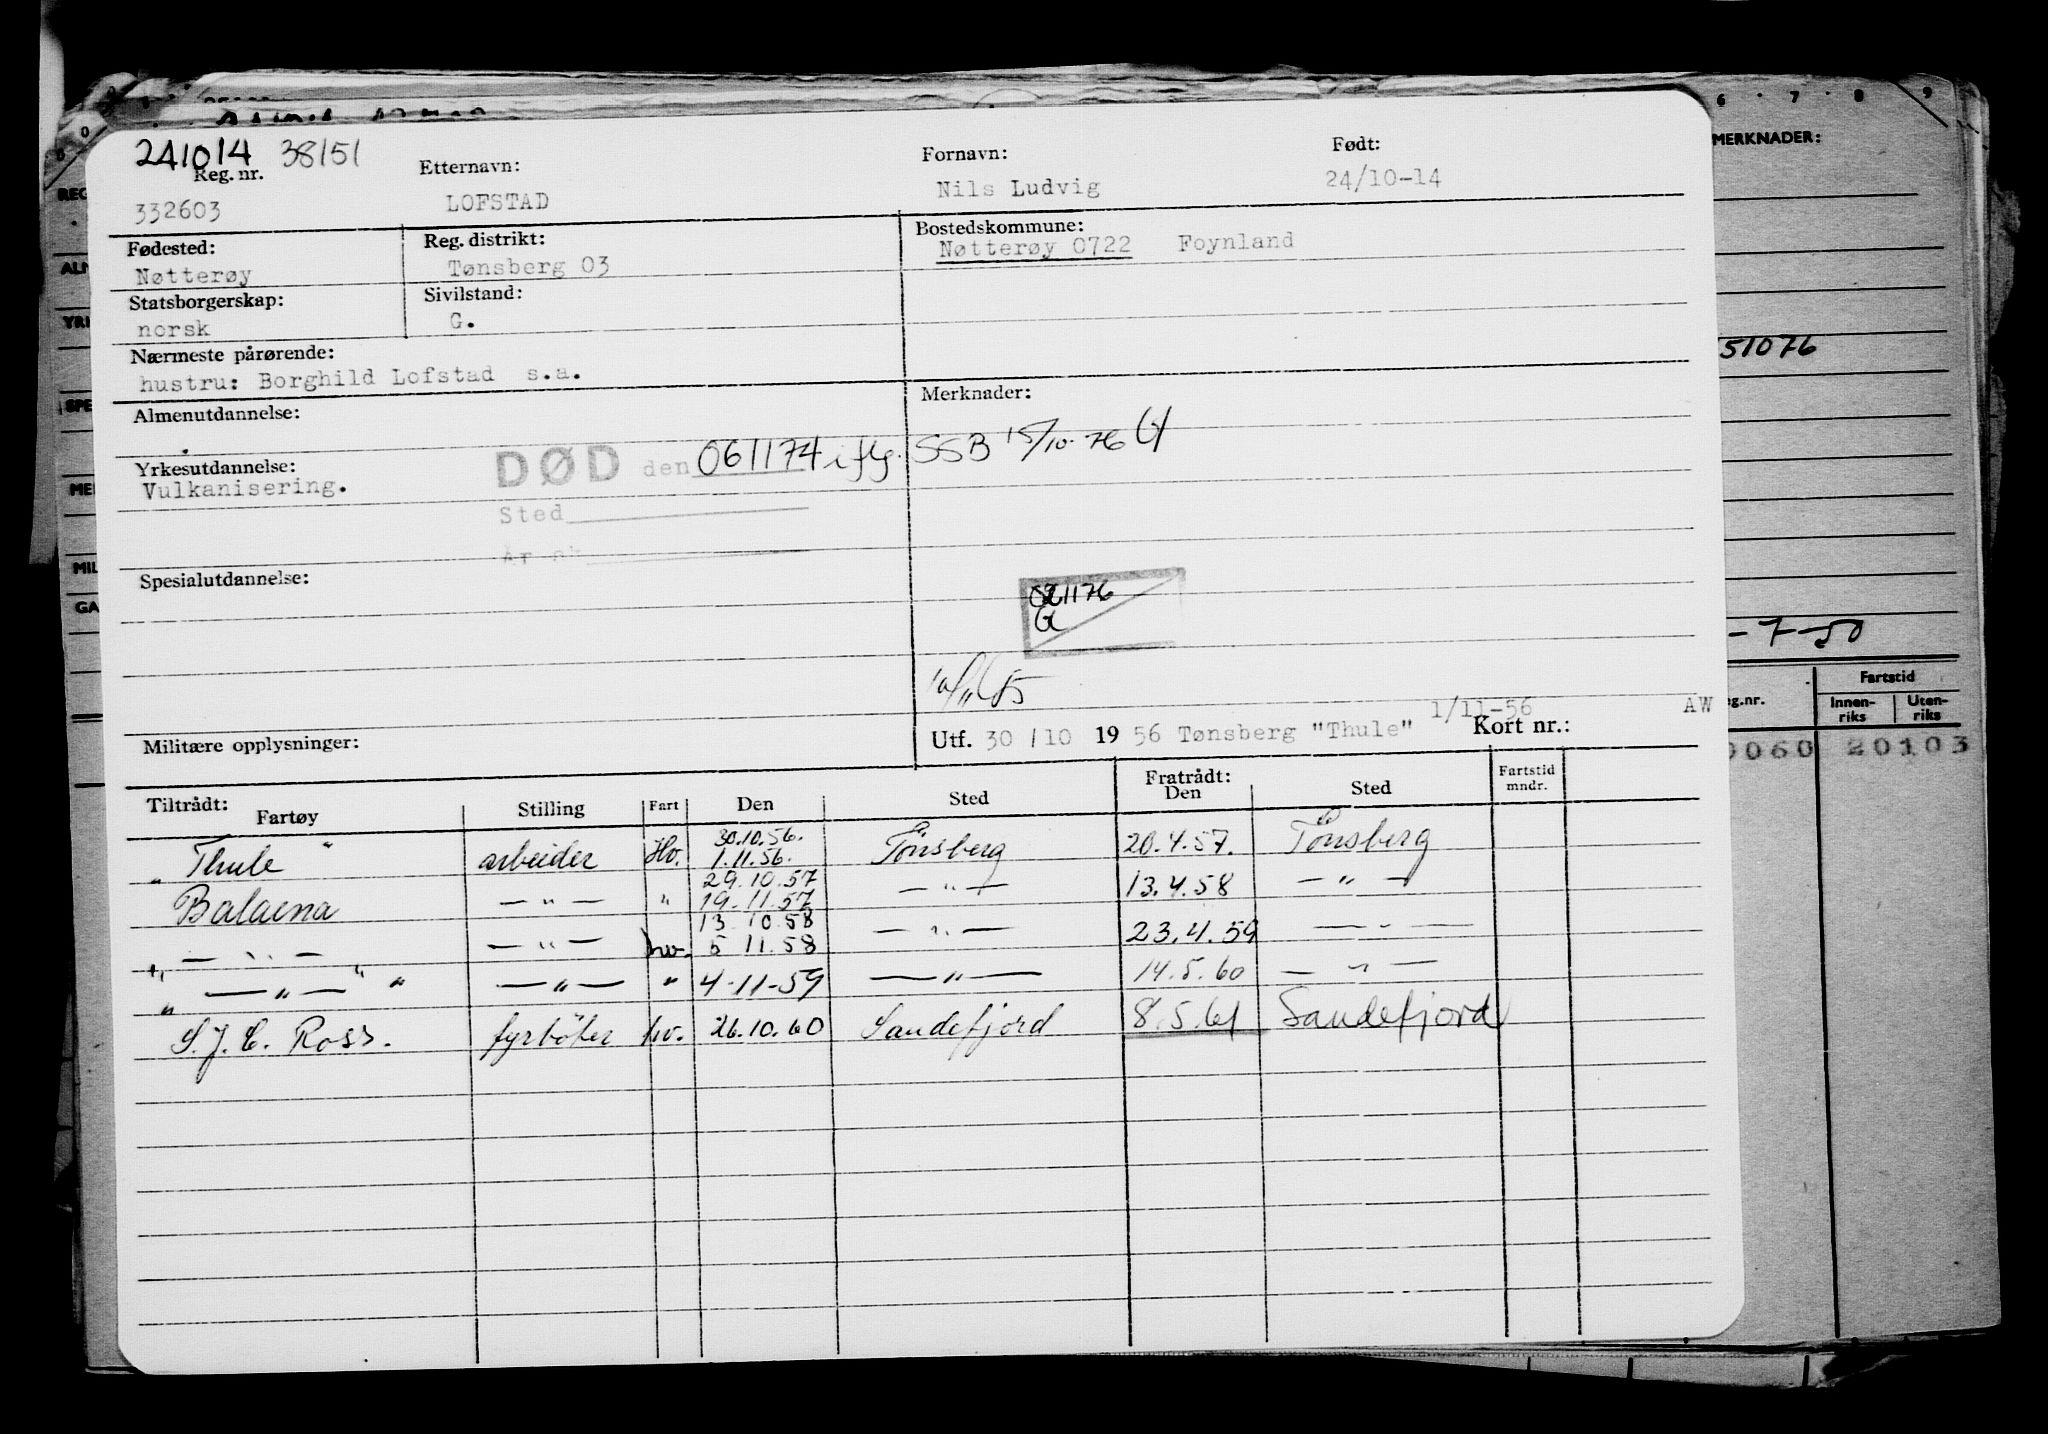 241014 38151
Reg. nr. Etternavn: Fornavn: Født:
332603 LOFSTAD Nils Ludvig 24/10-14
Fødested: Reg. distrikt: Bostedskommune:
Nøtterøy Tønsberg 03 Nøtterøy 0722 Foynland
Statsborgerskap: Sivilstand:
norsk G.
Nærmeste pårørende:
hustru: Borghild Lofstad s.a.
Almenutdannelse: Merknader:
DØD den 061174 iflg. SSB 15/10-76
Yrkesutdannelse:
Vulkanisering.
Sted
Spesialutdannelse:
021176
Militære opplysninger:
1/11-56 AW
Utf. 30/10 1956 Tønsberg "Thule" Kort nr.:
Tiltrådt: Fratrådt:
Fartøy Stilling Fart Den Sted Den Sted Fartstid mndr.
30.10.56.
" Thule " arbeider Hv. 1.11.56. Tönsberg 20.4.57. Tönsberg
29.10.57
Balaena — " — " 19.11.57 — " — 13.4.58 — " —
13 10 58
— " — — " — hv. 5 11.58 — " — 23.4.59 — " —
" — " — " — " — " 4-11-59 — " — 14.5.60 — " —
S.J.C. Ross. fyrböter hv. 26.10.60 Sandefjord 8.5.61 Sandefjord
6 7 8 9
MERKNADER:
51076
-7-50
Fartstid
Innen-riks Uten-riks
0060 20103
REG
YRK
SPE
MIL
GA